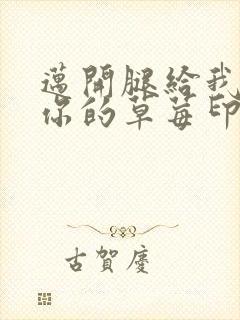 邁開腿給我
你的草莓印
古賀慶